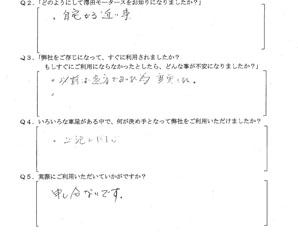 Q2.「どのようにして澤田モータースをお知りになりましたか？
・自宅から近い事
Q3.「弊社をご存じになって、すぐに利用されましたか？
もしすぐにご利用にならなかったとしたら、どんな事が不安になりましたか？」
Q4.いろいろな車屋がある中で、何が決め手となって弊社をご利用いただけましたか？
Q5.実際にご利用いただいていかがですか？
申し分ないです。